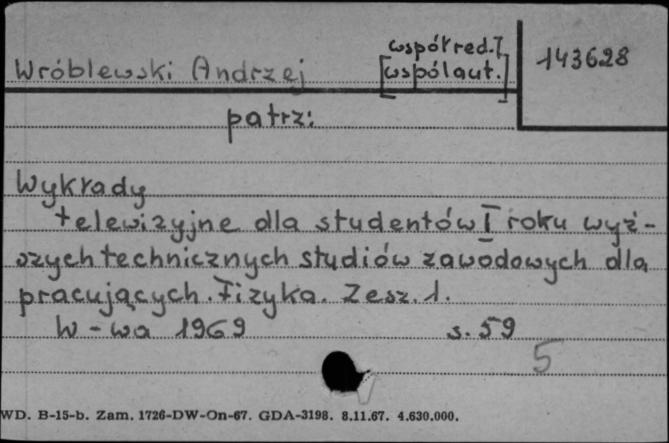 współred.]
Wróblewski Andrzej [współaut.]
143628
patrz:
Wykłady
telewizyjne dla studentów I roku wyż-
szych technicznych studiów zawodowych dla
pracujących. Fizyka. Zesz. 1.
W-wa 1969 s. 59
5
WD. B-15-b. Zam. 1726-DW-On-67. GDA-3198. 8.11.67. 4.630.000.